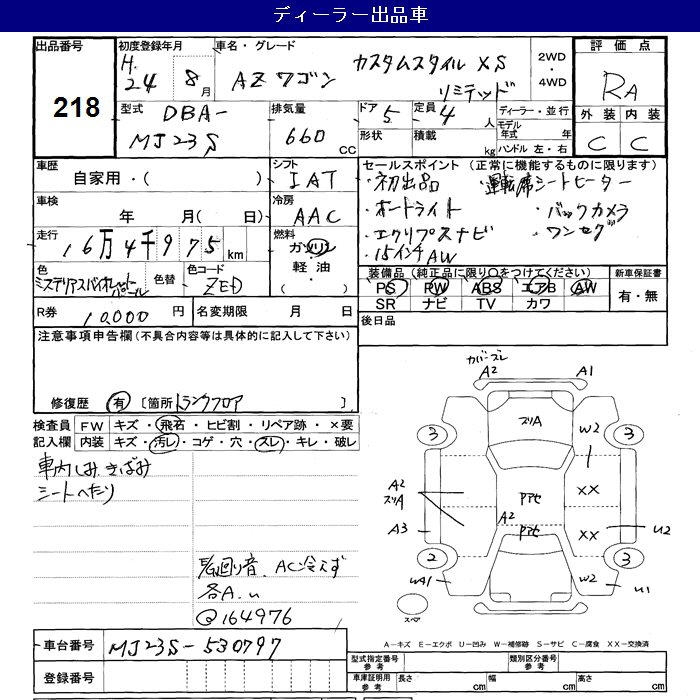 ディーラー出品車
出品番号
218
初度登録年月
H.
24 8月
車名・グレード
AZワゴン
カスタムスタイル XS
リミテッド
2WD
・
4WD
評価点
RA
外装 内装
C C
型式
DBA-
MJ23S
排気量
660
CC
ドア 5
形状
定員 4 人
積載 kg
ディーラー・並行
モデル年式 年
ハンドル 左・右
車歴
自家用・( )
シフト
IAT
車検
年 月( 日)
冷房
AAC
走行
16万4千975km
燃料
ガソリン
軽油・
( )
色
ミステリアスバイオレットパール
色替
色コード
ZED
R券 10,000 円
名変期限 月 日
セールスポイント(正常に機能するものに限ります)
・初出品 ・運転席シートヒーター
・オートライト ・バックカメラ
・エクリプスナビ ・ワンセグ
・15インチAW
装備品(純正品に限り○をつけてください)
PS PW ABS エアB AW
SR ナビ TV カワ
新車保証書
有・無
後日品
注意事項申告欄(不具合内容等は具体的に記入して下さい)
修復歴 有 〔箇所 トランクフロア 〕
検査員記入欄
FW キズ・飛石・ヒビ割・リペア跡・×要
内装 キズ・汚レ・コゲ・穴・スレ・キレ・破レ
車内しみ、きばみ
シートへたり
回り音、AC冷えず
各A.u
@164976
カバーズレ
A2 A1
ズリA
3 3
W2
A2
ズリA
Pアセ
××
A2
Pアセ
A3
××
U2
2 3
UA1
W2
U1
スペア
A－キズ E－エクボ U－凹み W－補修跡 S－サビ C－腐食 XX－交換済
車台番号 MJ23S-530797
登録番号
型式指定番号参考
類別区分番号参考
車庫証明用参考 長さ cm 幅 cm 高さ cm